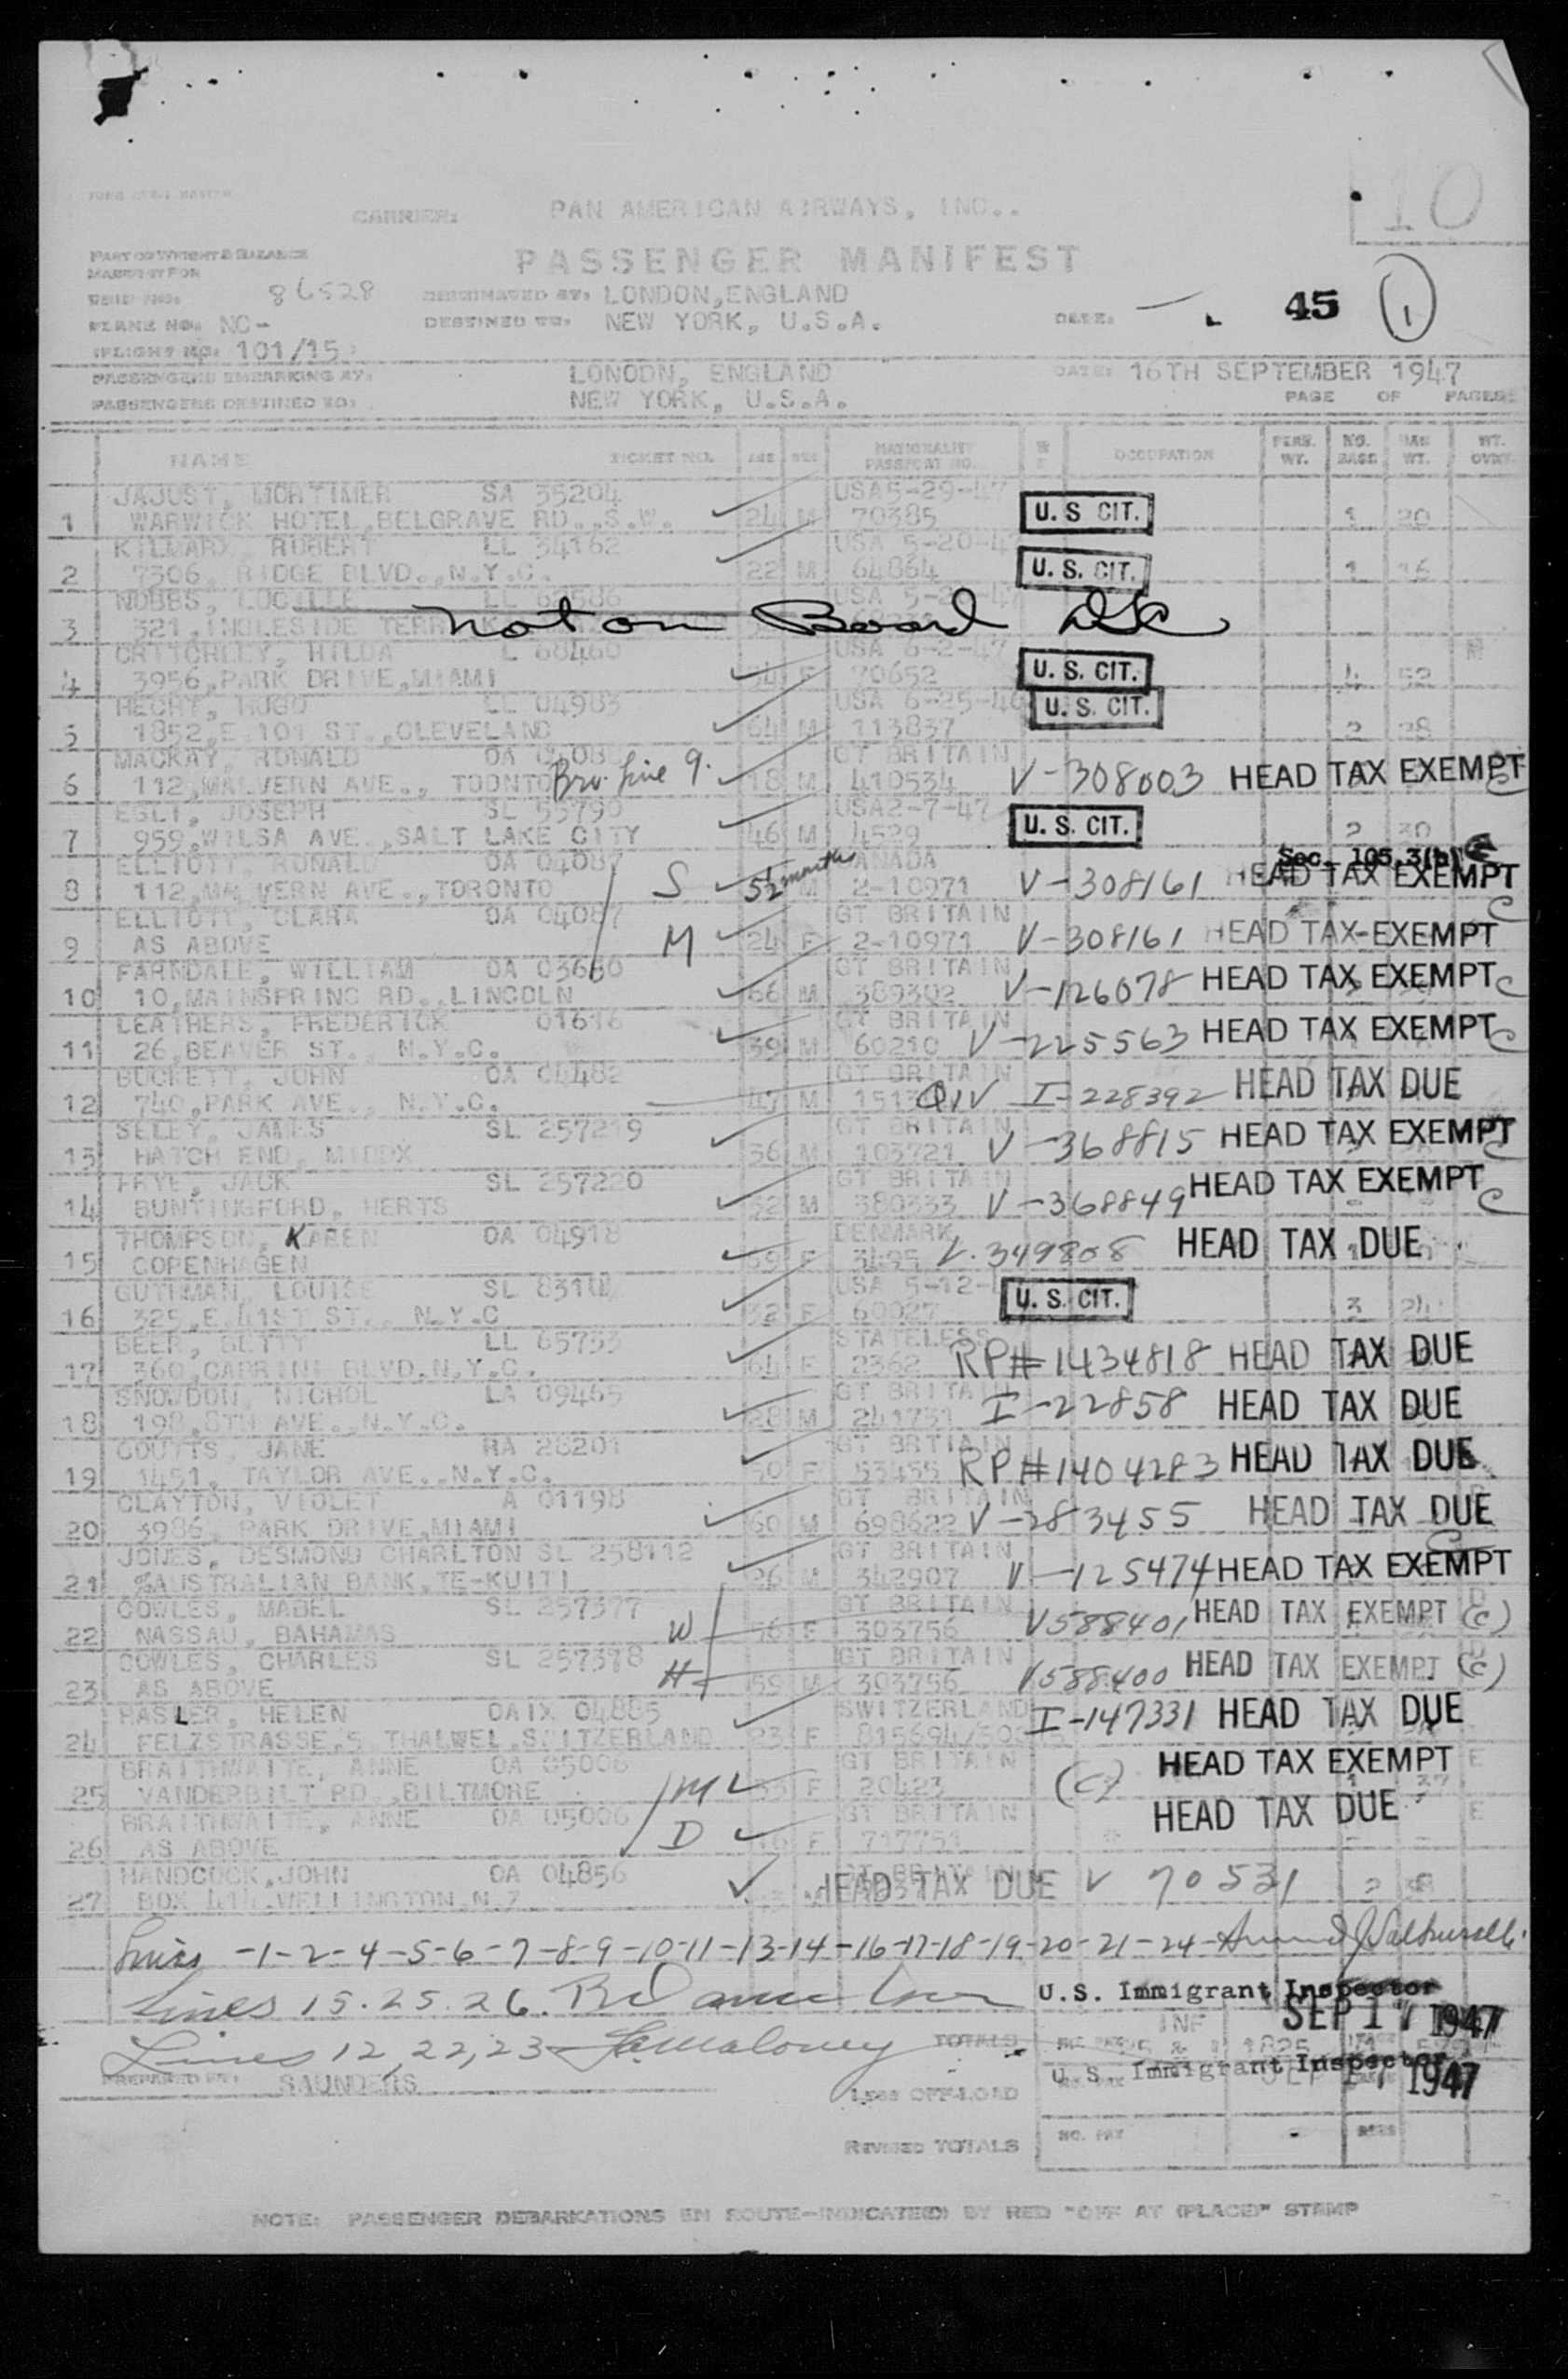 10
CARRIER: PAN AMERICAN AIRWAYS, INC..
PART OF WEIGHT & BALANCE
MANIFEST FOR
PASSENGER MANIFEST
86528
ORIGINATED AT: LONDON, ENGLAND
DATE:
45
1
PLANE NO: NC-
DESTINED TO: NEW YORK, U.S.A.
FLIGHT NO: 101/15
PASSENGERS EMBARKING AT: LONODN, ENGLAND DATE: 16TH SEPTEMBER 1947
PASSENGERS DESTINED TO: NEW YORK, U.S.A. PAGE OF PAGES
NAME TICKET NO. AGE SEX NATIONALITY PASSPORT NO. OCCUPATION PERS. WT. NO. BAGS BAG WT. WT. OVER
JAJUST, MORTIMER SA 35204 USA5-29-47
1 WARWICK HOTEL, BELGRAVE RD., S.W. 24 M 70385 U. S CIT. 1 20
KILMARX, ROBERT LL 34162 USA 5-20-4
2 7306, RIDGE BLVD., N.Y.C. 22 M 64864 U. S. CIT. 1 16
NOBBS, LUCILLE LL USA 5-2
3 321, INGLESIDE TERR Not on Board
CRITCHLEY, HILDA L 68460 USA 6-2-47 M
4 3956, PARK DRIVE, MIAMI 54 F 70652 U. S. CIT. 4 52
HECHT, HUGO LL 04983 USA 6-25-46
5 1852, E. 101 ST., CLEVELAND 64 M 113837 U. S. CIT. 2 28
MACKAY, RONALD OA GT BRITAIN
6 112, MALVERN AVE., TOONTO Bro. line 9. 18 M 410534 V-308003 HEAD TAX EXEMPT C
EGLI, JOSEPH SL 55790 USA2-7-47
7 959, WILSA AVE., SALT LAKE CITY 46 M 4529 U. S. CIT. 2 30
ELLIOTT, RONALD OA 04087 CANADA Sec. 105.3(b)
8 112, MALVERN AVE., TORONTO S 5½ months M 2-10971 V-308161 HEAD TAX EXEMPT
ELLIOTT, CLARA OA 04087 GT BRITAIN C
9 AS ABOVE M 24 F 2-10971 V-308161 HEAD TAX-EXEMPT
FARNDALE, WILLIAM OA 03680 GT BRITAIN
10 10, MAINSPRING RD., LINCOLN 66 M 389302 V-126078 HEAD TAX EXEMPT C
LEATHERS, FREDERICK 01616 GT BRITAIN
11 26, BEAVER ST., N.Y.C. 39 M 60210 V-225563 HEAD TAX EXEMPT C
BUCKETT, JOHN OA 04482 GT BRITAIN
12 740, PARK AVE., N.Y.C. 47 M QIV I-228392 HEAD TAX DUE
SELBY, JAMES SL 257219 GT BRITAIN
13 HATCH END, MIDDX 36 M 103721 V-368815 HEAD TAX EXEMPT C
FRYE, JACK SL 257220 GT BRITAIN
14 BUNTINGFORD, HERTS 32 M 380333 V-368849 HEAD TAX EXEMPT C
THOMPSON, KAREN OA 04918 DENMARK
15 COPENHAGEN 39 F 3495 V.349808 HEAD TAX DUE
GUTHMAN, LOUISE SL 8314 USA 5-12-
16 325, E. 41ST ST., N.Y.C 32 F 60027 U. S. CIT. 3 24
BEER, BETTY LL 65753 STATELESS
17 360, CABRINI BLVD. N.Y.C. 64 F 2362 RP# 1434818 HEAD TAX DUE
SNOWDON, NICHOL LA 09465 GT BRITAIN
18 198, 8TH AVE., N.Y.C. 28 M 241731 I-22858 HEAD TAX DUE
COUTTS, JANE RA 28201 GT BRTIAIN
19 1451, TAYLOR AVE., N.Y.C. 50 F 53455 RP# 1404283 HEAD TAX DUE
CLAYTON, VIOLET A 01198 GT BRITAIN
20 3986, PARK DRIVE, MIAMI 60 M 698622 V-283455 HEAD TAX DUE
JONES, DESMOND CHARLTON SL 258112 GT BRITAIN C
21 %AUSTRALIAN BANK, TE-KUITI 26 M 342907 V-125474 HEAD TAX EXEMPT
COWLES, MABEL SL 257377 GT BRITAIN
22 NASSAU, BAHAMAS W 56 F 303756 V588401 HEAD TAX EXEMPT (C)
COWLES, CHARLES SL 257378 GT BRITAIN
23 AS ABOVE H 59 M 303756 V588400 HEAD TAX EXEMPT (C)
HASLER, HELEN OAIX 04885 SWITZERLAND
24 FELZSTRASSE, 5 THALWEL, SWITZERLAND 23 F 815694 I-147331 HEAD TAX DUE
BRAITHWAITE, ANNE OA 05006 GT BRITAIN E
25 VANDERBILT RD., BILTMORE M F 20423 (C) HEAD TAX EXEMPT 1 37
BRAITHWAITE, ANNE OA 05006 GT BRITAIN E
26 AS ABOVE D F 717751 HEAD TAX DUE
HANDCOCK, JOHN OA 04856
27 BOX 414, WELLINGTON, N.Z HEAD TAX DUE V 70531 2
Lines -1-2-4-5-6-7-8-9-10-11-13-14-16-17-18-19-20-21-24-
Lines 15.25.26.
U.S. Immigrant Inspector
SEP 17 1947
Lines 12, 22, 23 Maloney TOTALS
PREPARED BY: SAUNDERS
U. S. Immigrant Inspector
SEP 17 1947
LESS OFF-LOAD
REVISED TOTALS NO. PAX BAGS
NOTE: PASSENGER DEBARKATIONS EN ROUTE-INDICATED BY RED "OFF AT (PLACE)" STAMP